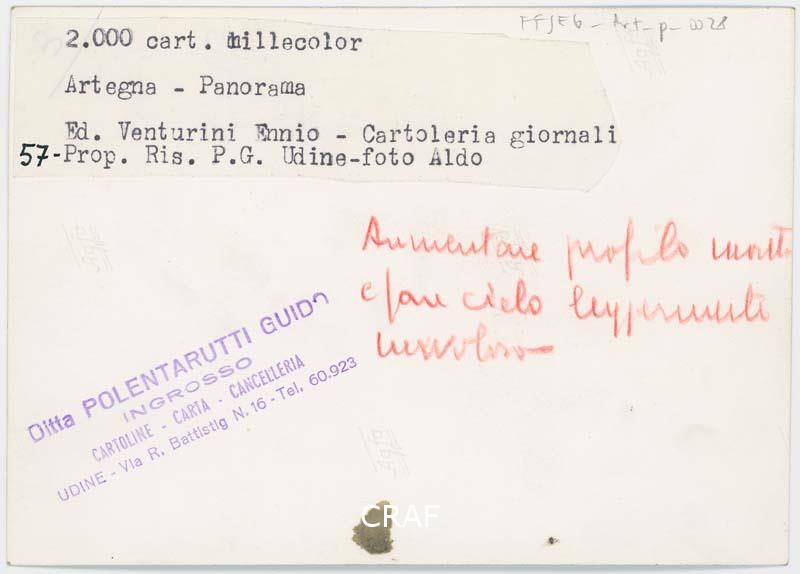 FFSEG-Art-p-0028
2.000 cart. millecolor
Artegna - Panorama
Ed. Venturini Ennio - Cartoleria giornali
57-Prop. Ris. P.G. Udine-foto Aldo
Aumentare profilo monti
e fare cielo leggermente
nuvoloso
Ditta POLENTARUTTI GUIDO
INGROSSO
CARTOLINE - CARTA - CANCELLERIA
UDINE - Via R. Battistig N. 16 - Tel. 60.923
Agfa
Agfa
Agfa
CRAF